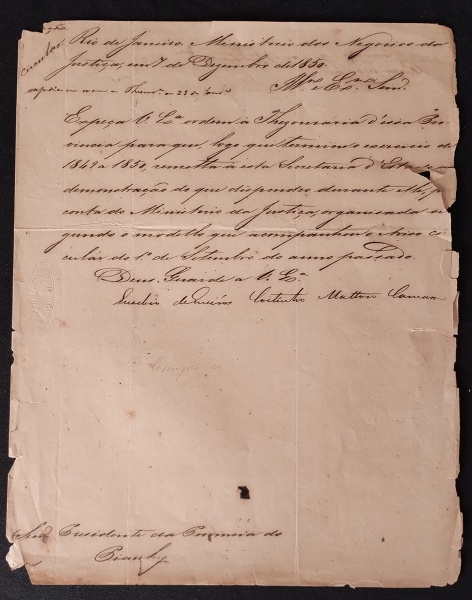 Circular
Rio de Janeiro Ministerio dos Negocios da
Justiça, em 7 de Dezembro de 1850.
Illmo e Exmo Snr.
Expeça V. Exa ordem á Thezouraria d'essa Pro-
vincia para que, logo que termine o exercicio de
1849 a 1850, remetta á esta Secretaria d'Estado a
demonstração do que dispendeo durante elle, por
conta do Ministerio da Justiça, organisada se-
gundo o modello que acompanhou o Aviso cir-
cular do 1º de Setembro do anno passado.
Deus Guarde a V. Exa
Euzebio de Queirós Coitinho Mattoso Camara
Snr Presidente da Provincia do
Piauhy